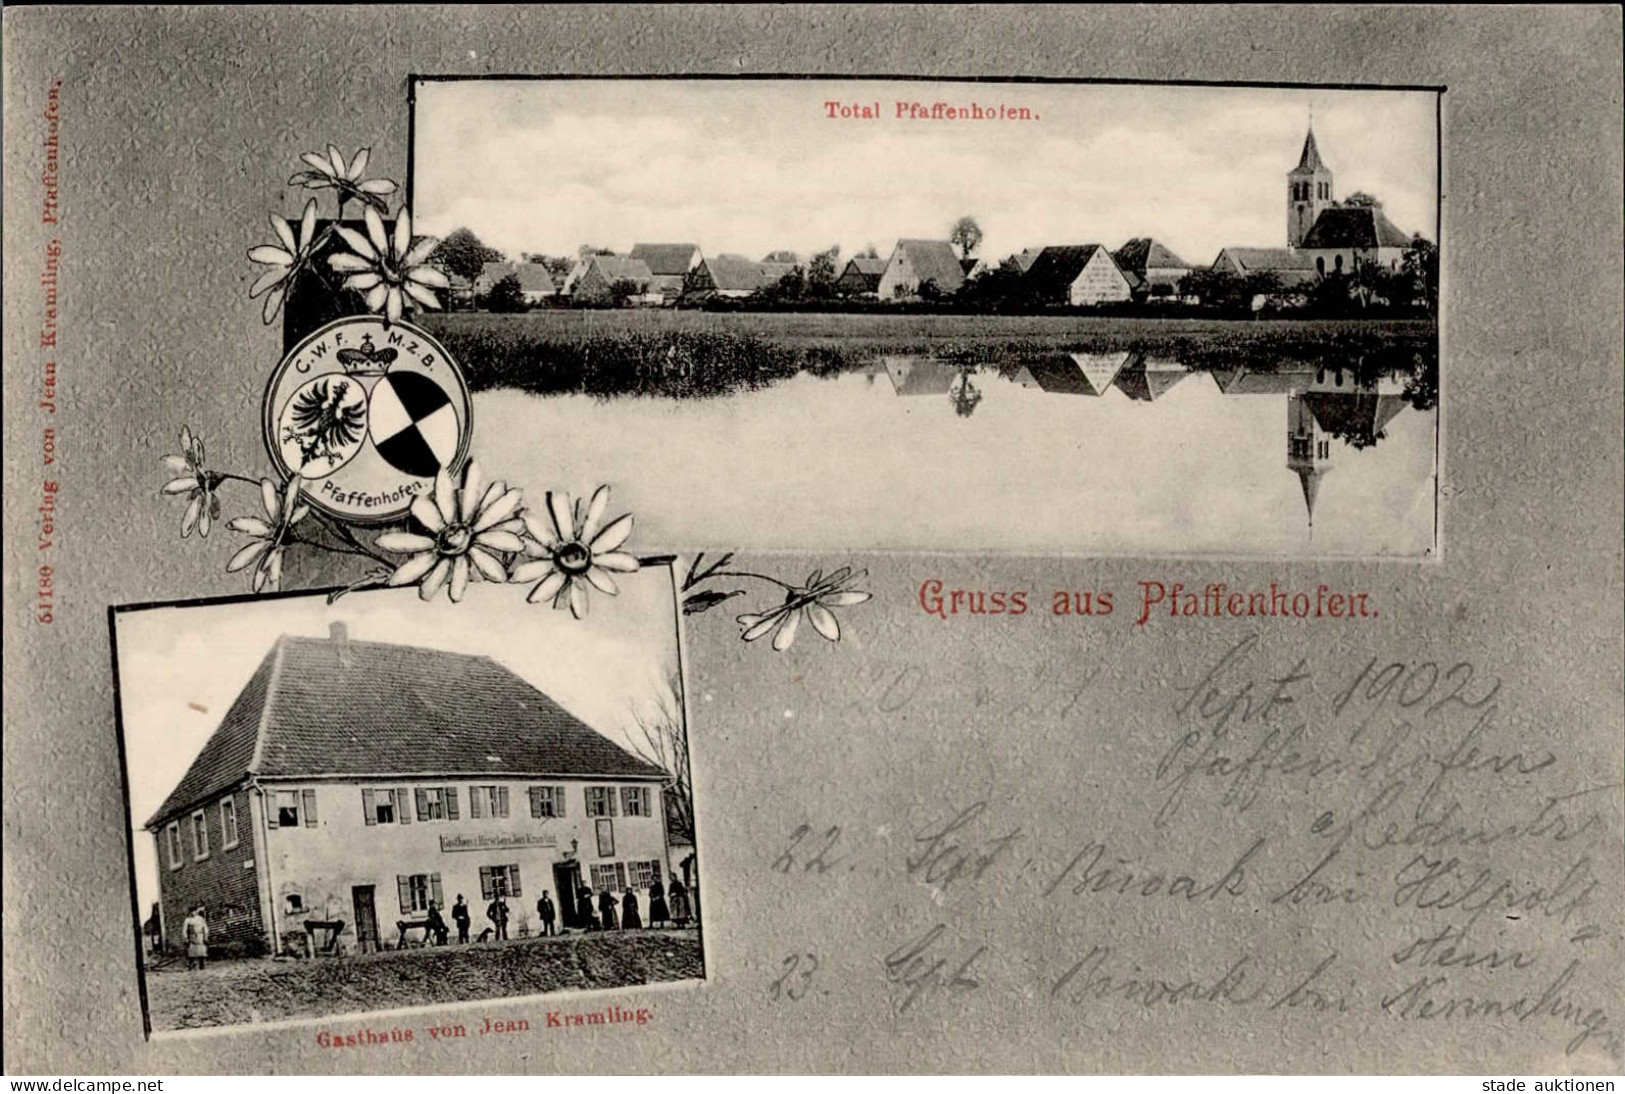 Total Pfaffenhofen.
51180 Verlag von Jean Kramling, Pfaffenhofen.
C.W.F. M.Z.B.
Pfaffenhofen.
Gruss aus Pfaffenhofen.
20 21 Sept 1902
Pfaffenhofen
22. Sept. Biwak bei Hilpolt=
stein
23. Sept Biwak bei
Gasthaus z. Hirschen v. Jean Kramling
Gasthaus von Jean Kramling.
PICTURES NOT INCLUDED IN THE PURCHASE !
stade auktionen